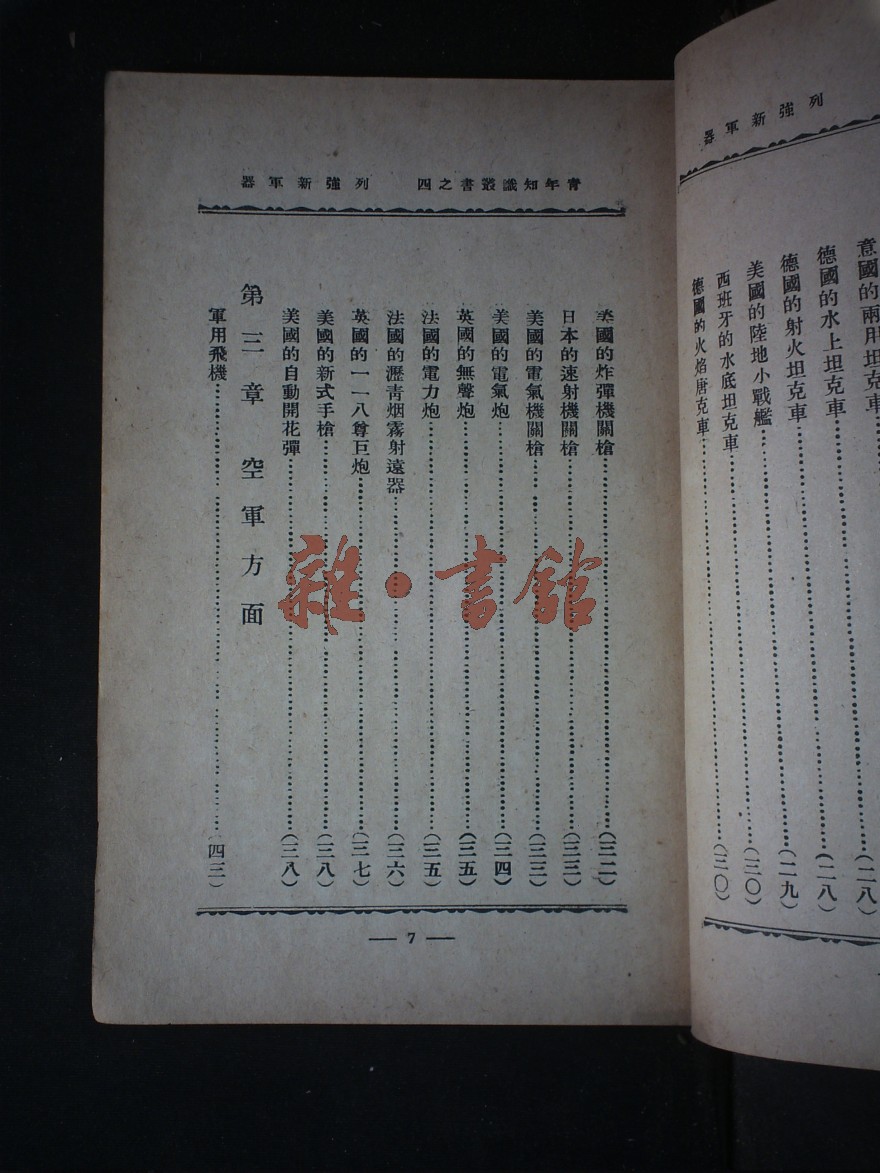 列強新軍器
意國的兩用坦克車(二八)
德國的水上坦克車(二八)
德國的射火坦克車(二九)
美國的陸地小戰艦(三〇)
西班牙的水底坦克車
德國的火焰唐克車(三〇)
青年知識叢書之四 列強新軍器
美國的炸彈機關槍(三二)
日本的速射機關槍(三三)
美國的電氣機關槍(三三)
美國的電氣炮(三四)
英國的無聲炮(三五)
法國的電力炮(三五)
法國的瀝青烟霧射遠器(三六)
英國的一一八尊巨炮(三七)
美國的新式手槍(三八)
美國的自動開花彈(三八)
第三章 空軍方面
軍用飛機(四三)
— 7 —
雜·書館